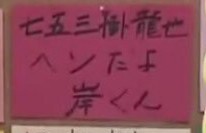 七五三掛龍也
ヘンだよ
岸くん